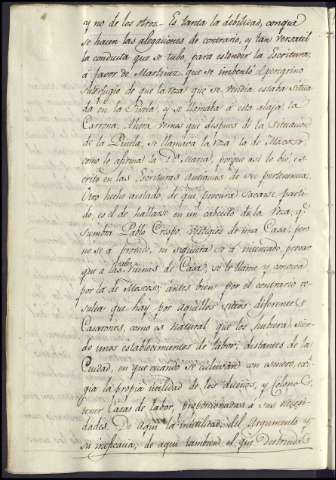 y no de los otros. Es tanta la debilidad, conque
se hacen las alegaciones de contrario, y tan versatil
la conducta que se tubo, para estender la Escritura
á favor de Martinez, que se imbentó el peregrino
subterfugio de que la Roza que se vendia estaba situa
da en la Puebla, y se llamaba á esta alaja la
Carrona. Ahora vemos que despues de la situacion
de la Puebla, se llamara la Roza la de Mascoso
como lo afirma la D.ª Maria, porque asi lo vió, es
crito en las Escrituras antiguas de su pertenencia.
Otro hecho aislado, de que procura sacarse parti
do, es el de hallarse en un cabecito de la Roza, q.e
siembra Pablo Crespo, vestigios de una Casa; pero
no se á provado, ni siquiera se á intentado, provar
que á las ruinas de Casa, se la llame y conozca
por la de Mascoso, antes bien por el contrario re
sulta que hay por aquellos sitios diferentes
Casarones, como es natural que los hubiera sien
do unos establecimientos de labor, distantes de la
Ciudad, en que cuando se cultivaban con esmero, exi
gia la propia utilidad de los dueños, y Colonos
tener Casas de labor, proporcionadas á sus necesi
dades. De aqui la inutilidad del argumento y
su ineficacia; de aqui tambien el que